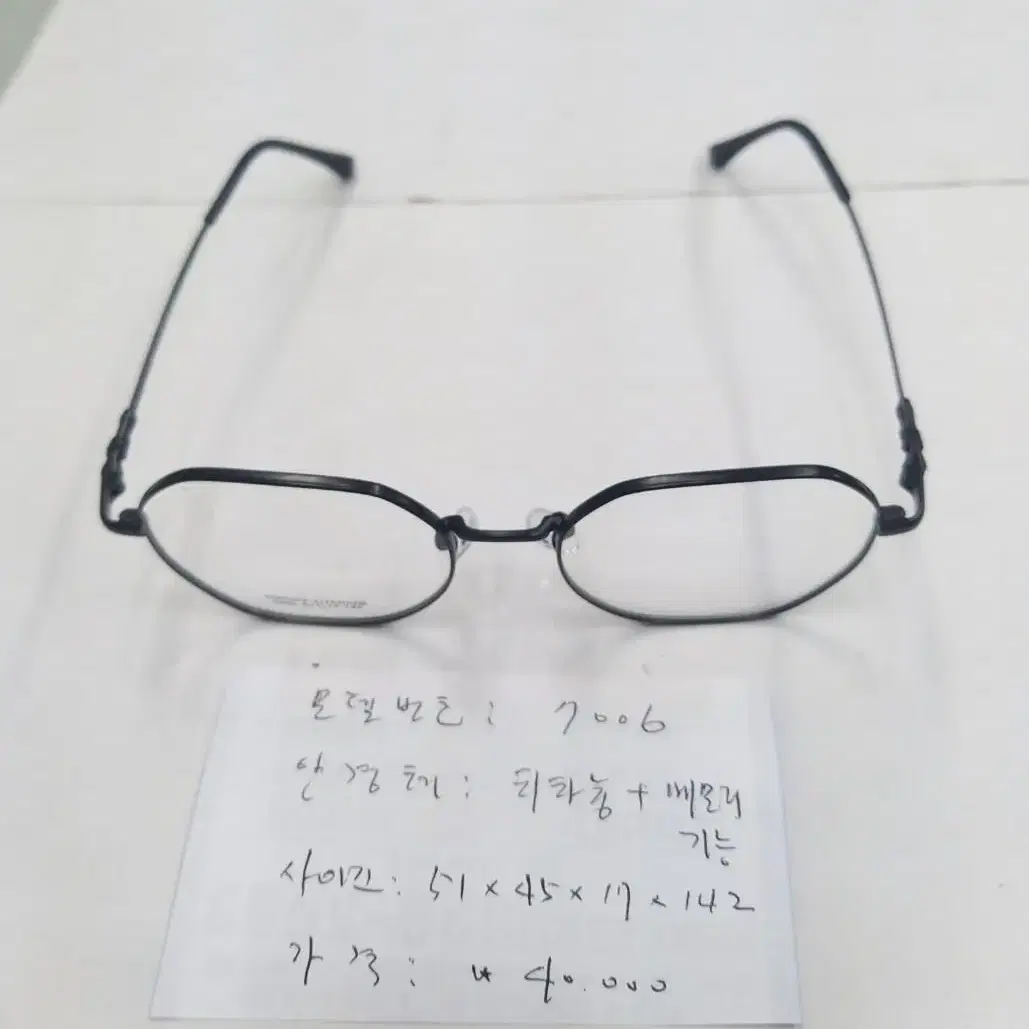 모델번호 : 7006
안경테 : 티타늄 + 메모리
기능
사이즈 : 51 x 45 x 17 x 142
가격 : ₩ 40.000